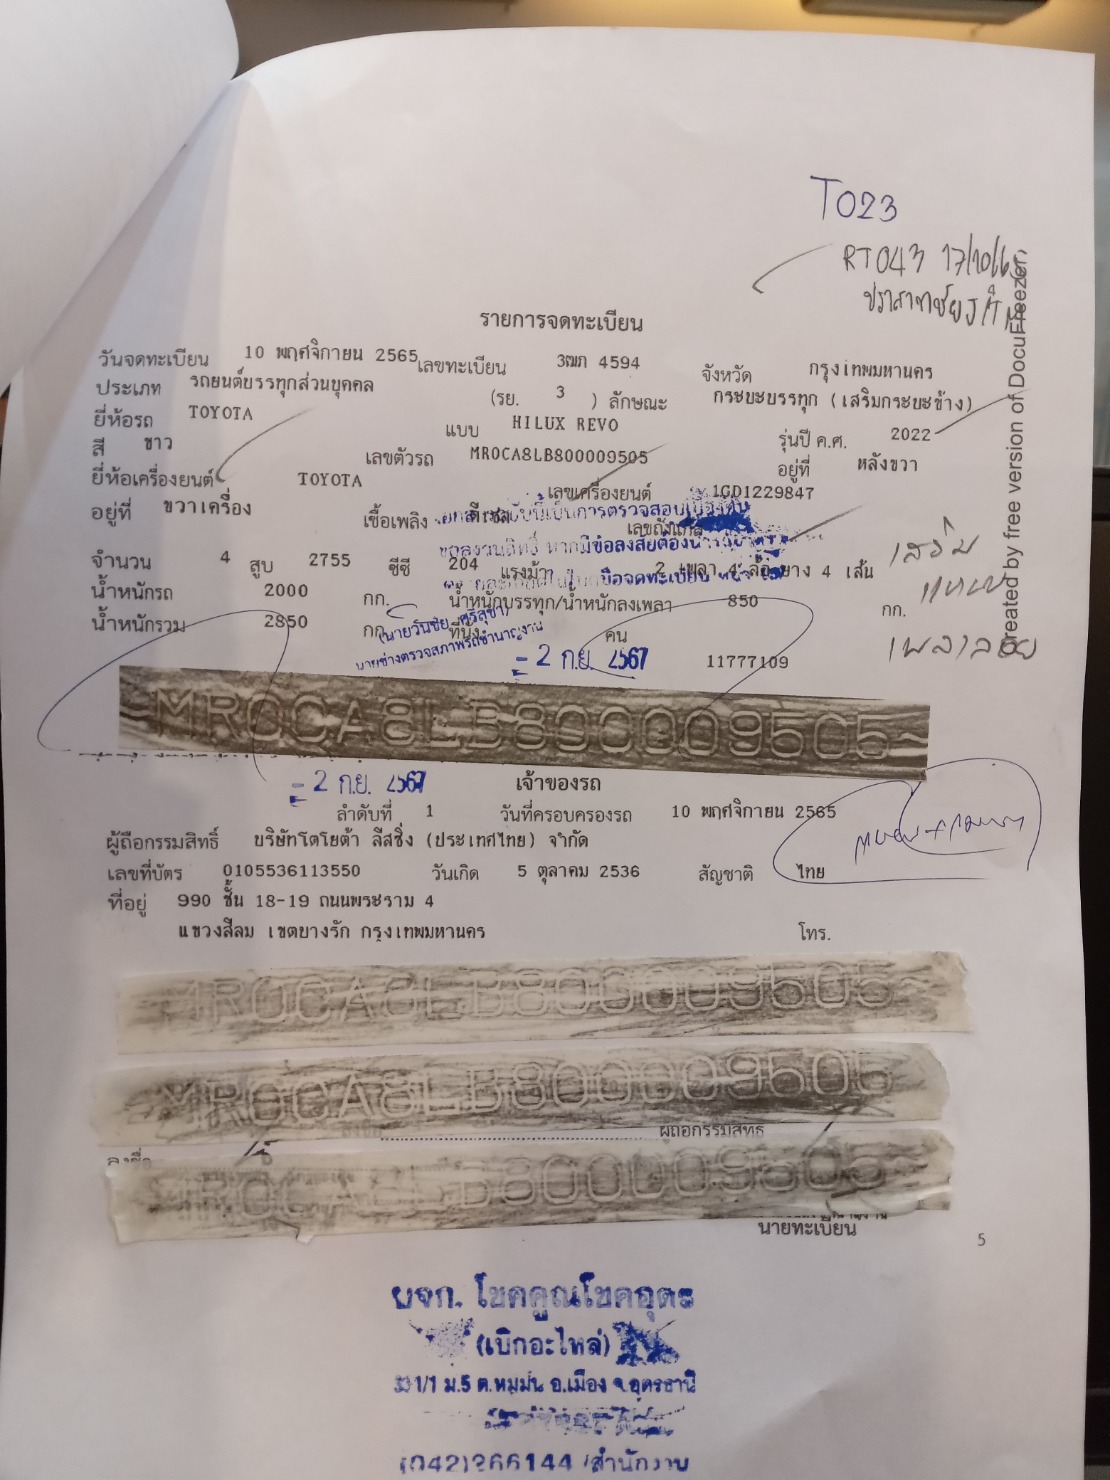 T023
RT043 17/10/65
รายการจดทะเบียน
วันจดทะเบียน 10 พฤศจิกายน 2565 เลขทะเบียน 3ฒภ 4594 จังหวัด กรุงเทพมหานคร
ประเภท รถยนต์บรรทุกส่วนบุคคล (รย. 3 ) ลักษณะ กระบะบรรทุก (เสริมกระบะข้าง)
ยี่ห้อรถ TOYOTA แบบ HILUX REVO รุ่นปี ค.ศ. 2022
สี ขาว เลขตัวรถ MR0CA8LB800009505 อยู่ที่ หลังขวา
ยี่ห้อเครื่องยนต์ TOYOTA เลขเครื่องยนต์ 1GD1229847
อยู่ที่ ขวาเครื่อง เชื้อเพลิง ดีเซล เลขถังแก๊ส
จำนวน 4 สูบ 2755 ซีซี 204 แรงม้า 2 เพลา 4 ล้อ ยาง 4 เส้น
น้ำหนักรถ 2000 กก. น้ำหนักบรรทุก/น้ำหนักลงเพลา 850 กก.
น้ำหนักรวม 2850 กก. ที่นั่ง คน
เสริม
แหนบ
เพลาลอย
(นายวันชัย ศรีสุชา)
นายช่างตรวจสภาพรถชำนาญงาน
- 2 ก.ย. 2567 11777109
MR0CA8LB800009505
- 2 ก.ย. 2567 เจ้าของรถ
ลำดับที่ 1 วันที่ครอบครองรถ 10 พฤศจิกายน 2565
ผู้ถือกรรมสิทธิ์ บริษัทโตโยต้า ลีสซิ่ง (ประเทศไทย) จำกัด
เลขที่บัตร 0105536113550 วันเกิด 5 ตุลาคม 2536 สัญชาติ ไทย
ที่อยู่ 990 ชั้น 18-19 ถนนพระราม 4
แขวงสีลม เขตบางรัก กรุงเทพมหานคร โทร.
MR0CA8LB800009505
MR0CA8LB800009505
ผู้ถือกรรมสิทธิ์
ลงชื่อ
MR0CA8LB800009505
นายทะเบียน
5
หจก. โชคคูณโชคอุดร
(เบิกอะไหล่)
1/1 ม.5 ต.หมูม่น อ.เมือง จ.อุดรธานี
(042)266144 /สำนักงาน
Created by free version of DocuFreezer